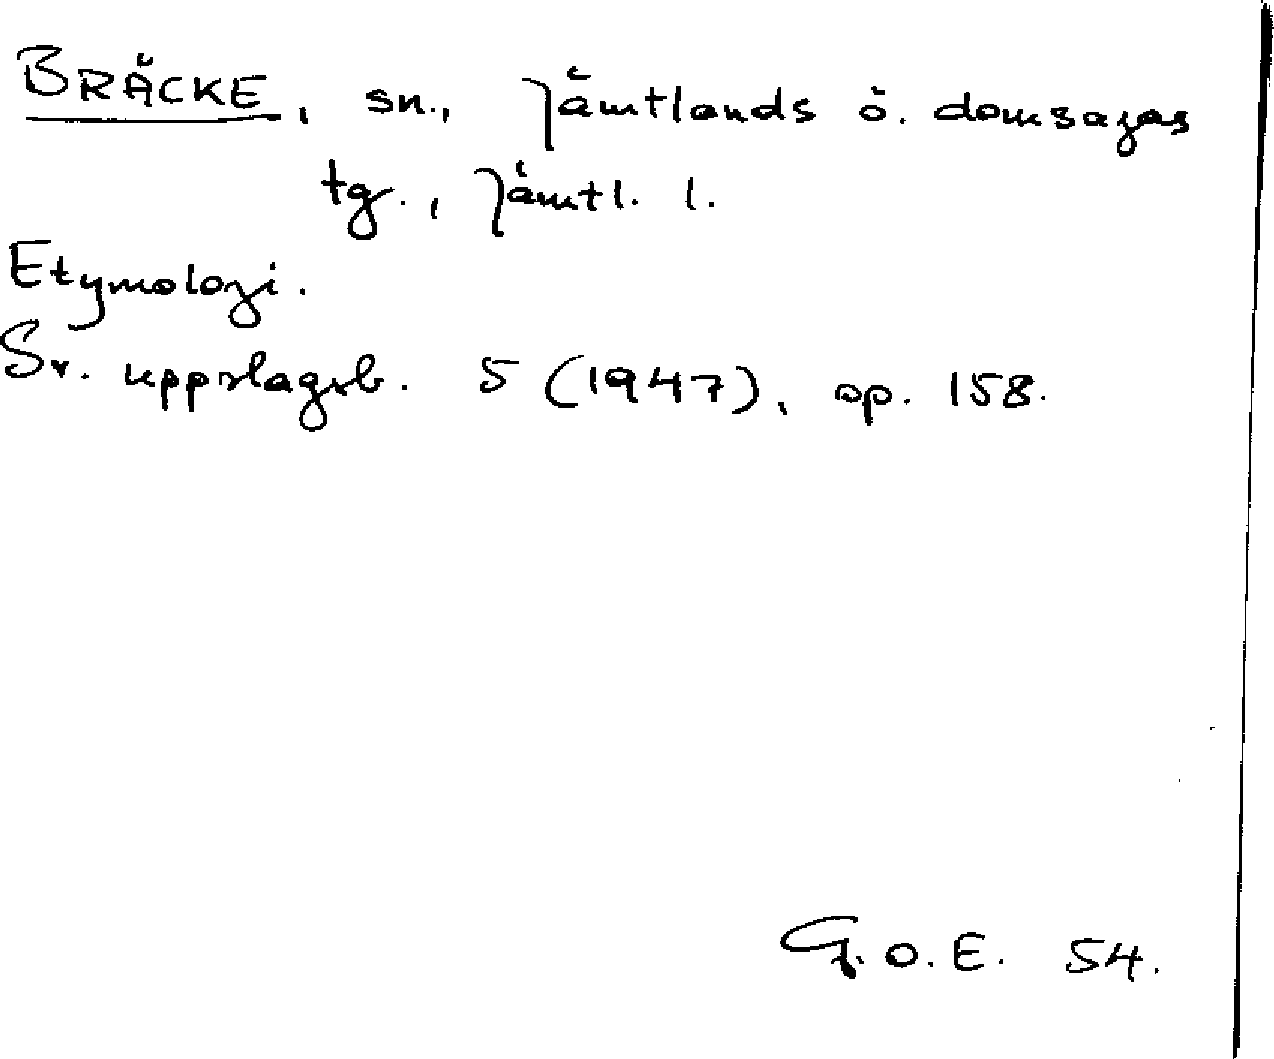 BRÄCKE, sn., Jämtlands ö. domsagas
tg., Jämtl. l.
Etymologi.
Sv. uppslagsb. 5 (1947), sp. 158.
G.O.E. 54.